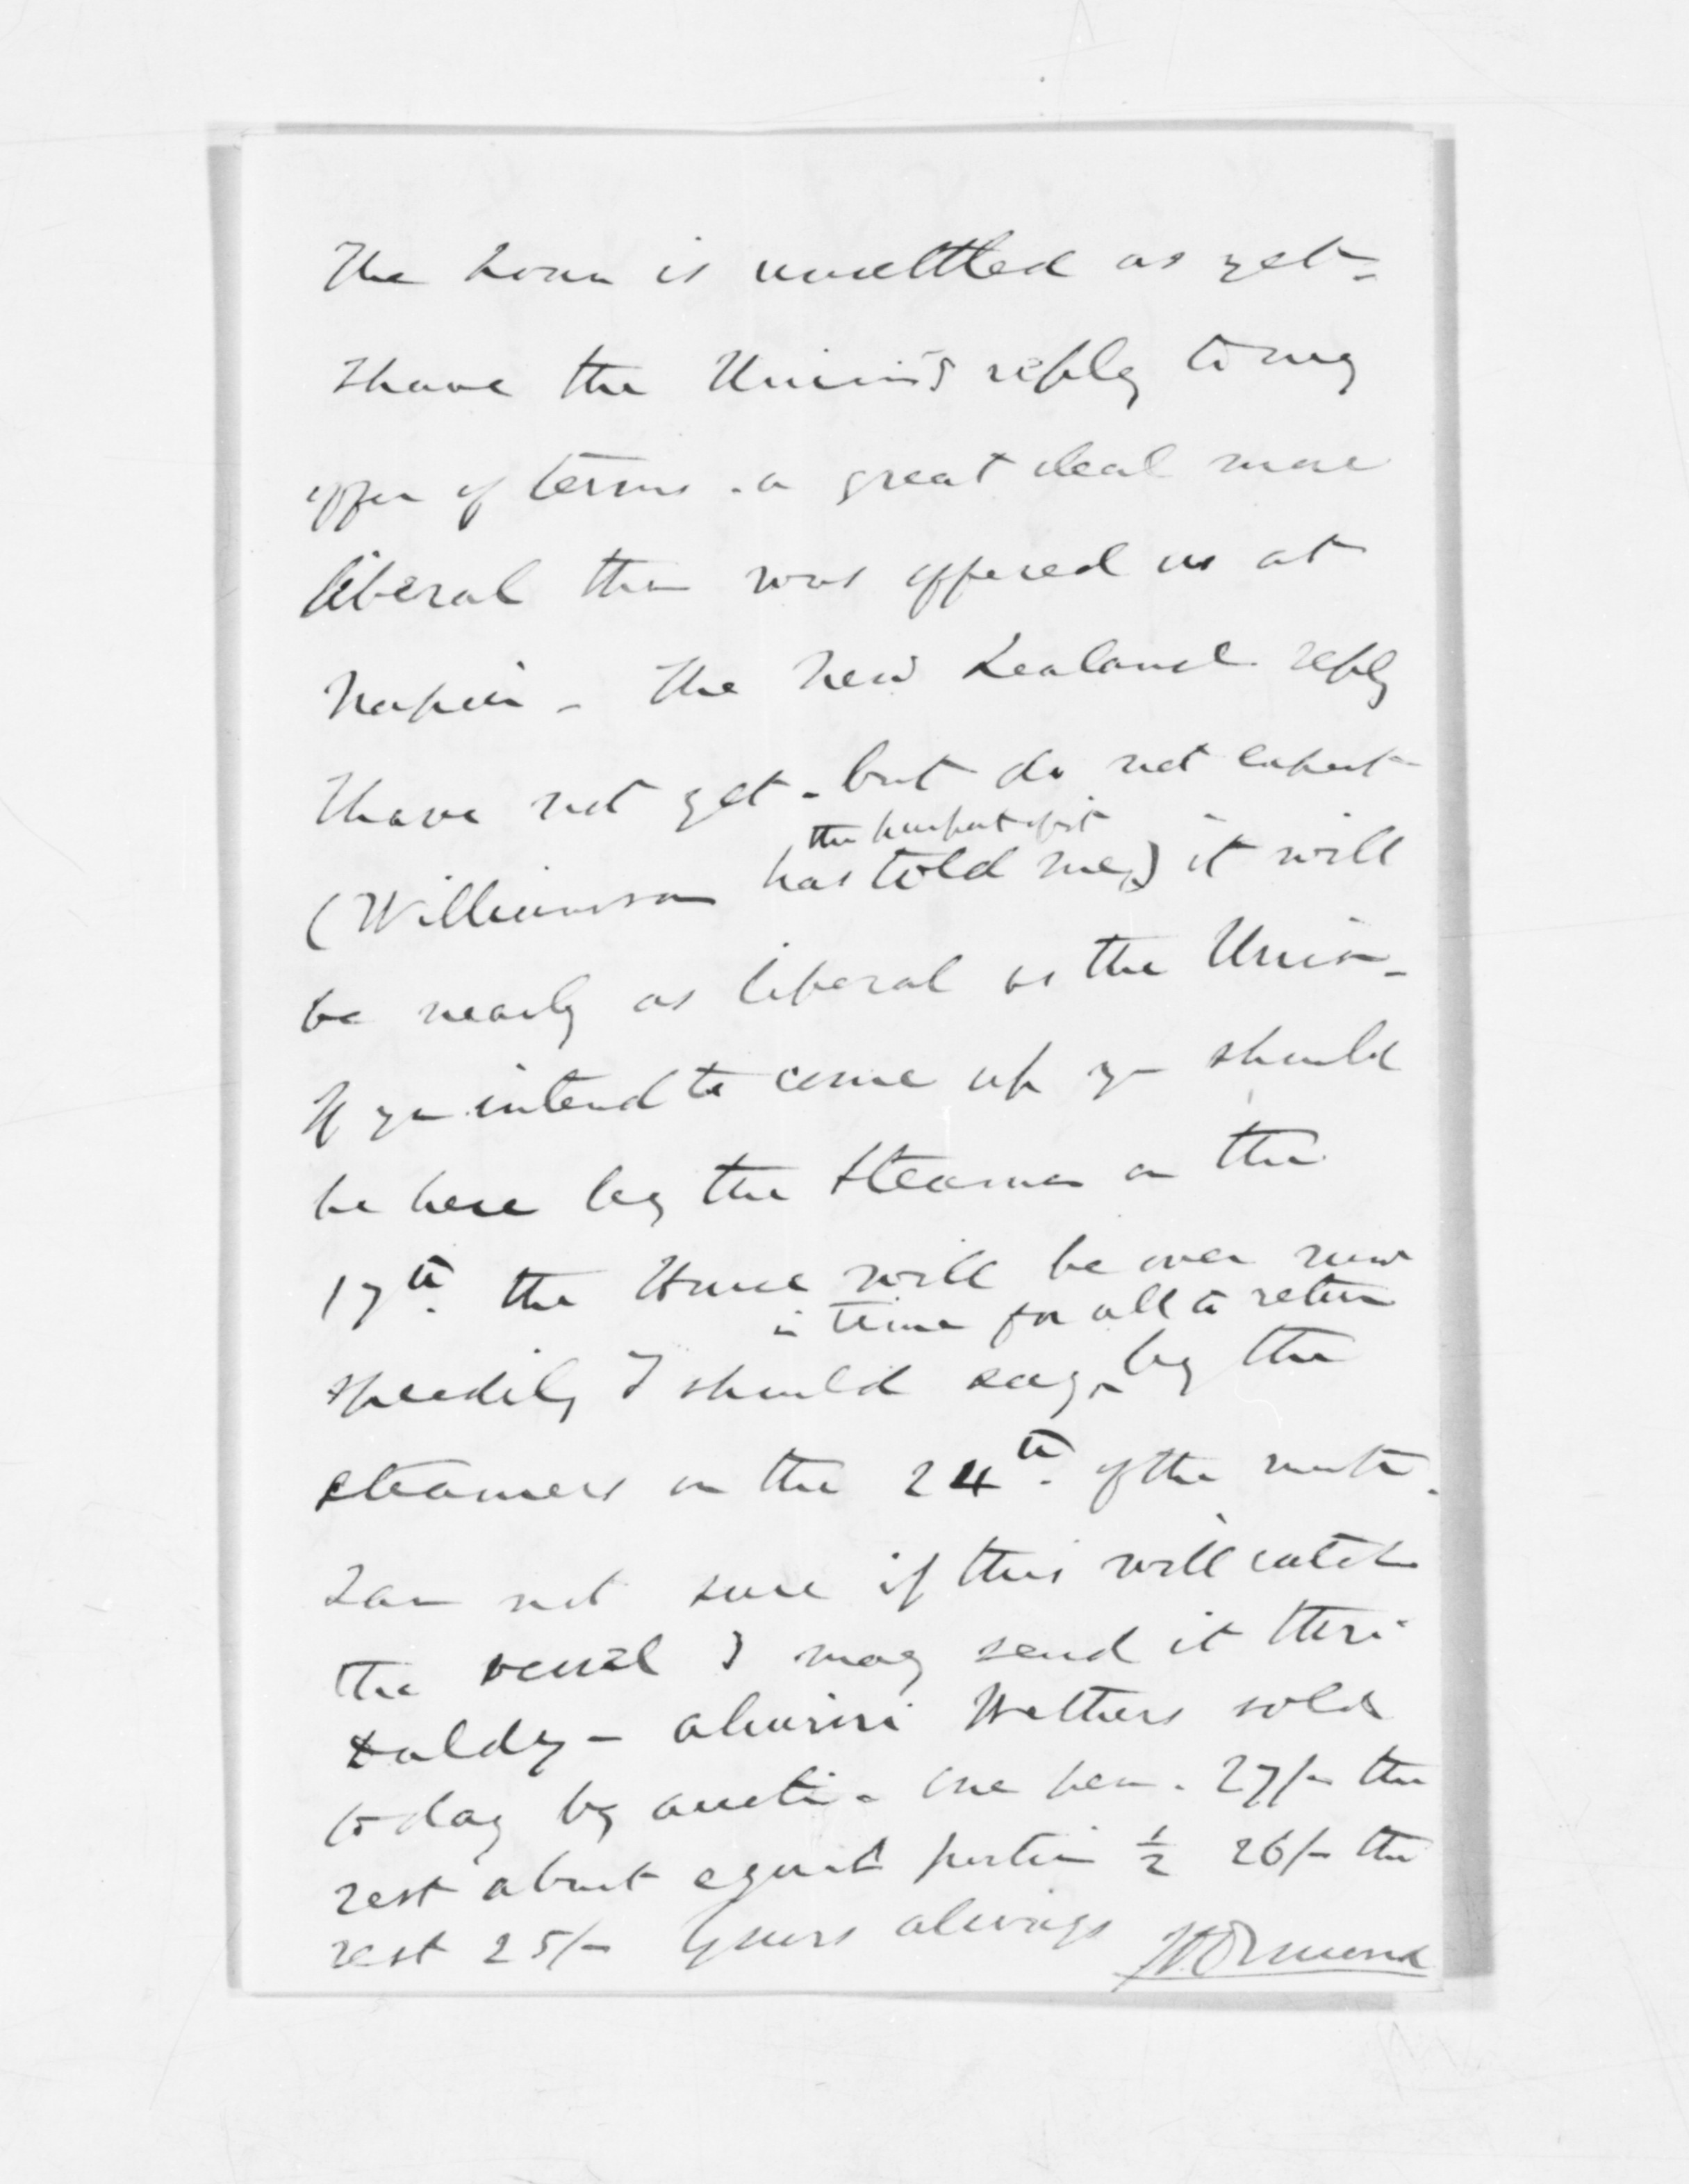 The Loan is unsettled as yet -
I have the Union's reply to my
offer of terms - a great deal more
liberal than was offered us at
Napier - The New Zealand reply
I have not yet - but do not expect
the purport of it
(Williamson has told me) it will
be nearly as liberal as the Union -
If you intend to come up you should
be here by the Steamer on the
17th. the House will be over now
in time for all to return
speedily I should say, by the
steamers on the 24th. of the month.
I am not sure if this will catch
the vessel I may send it thro'
- Ahuriri Wethers sold
to day by auction - One pen - 27/- the
rest about equal portion ½ 26/- the
rest 25/- Yours always JDOrmond